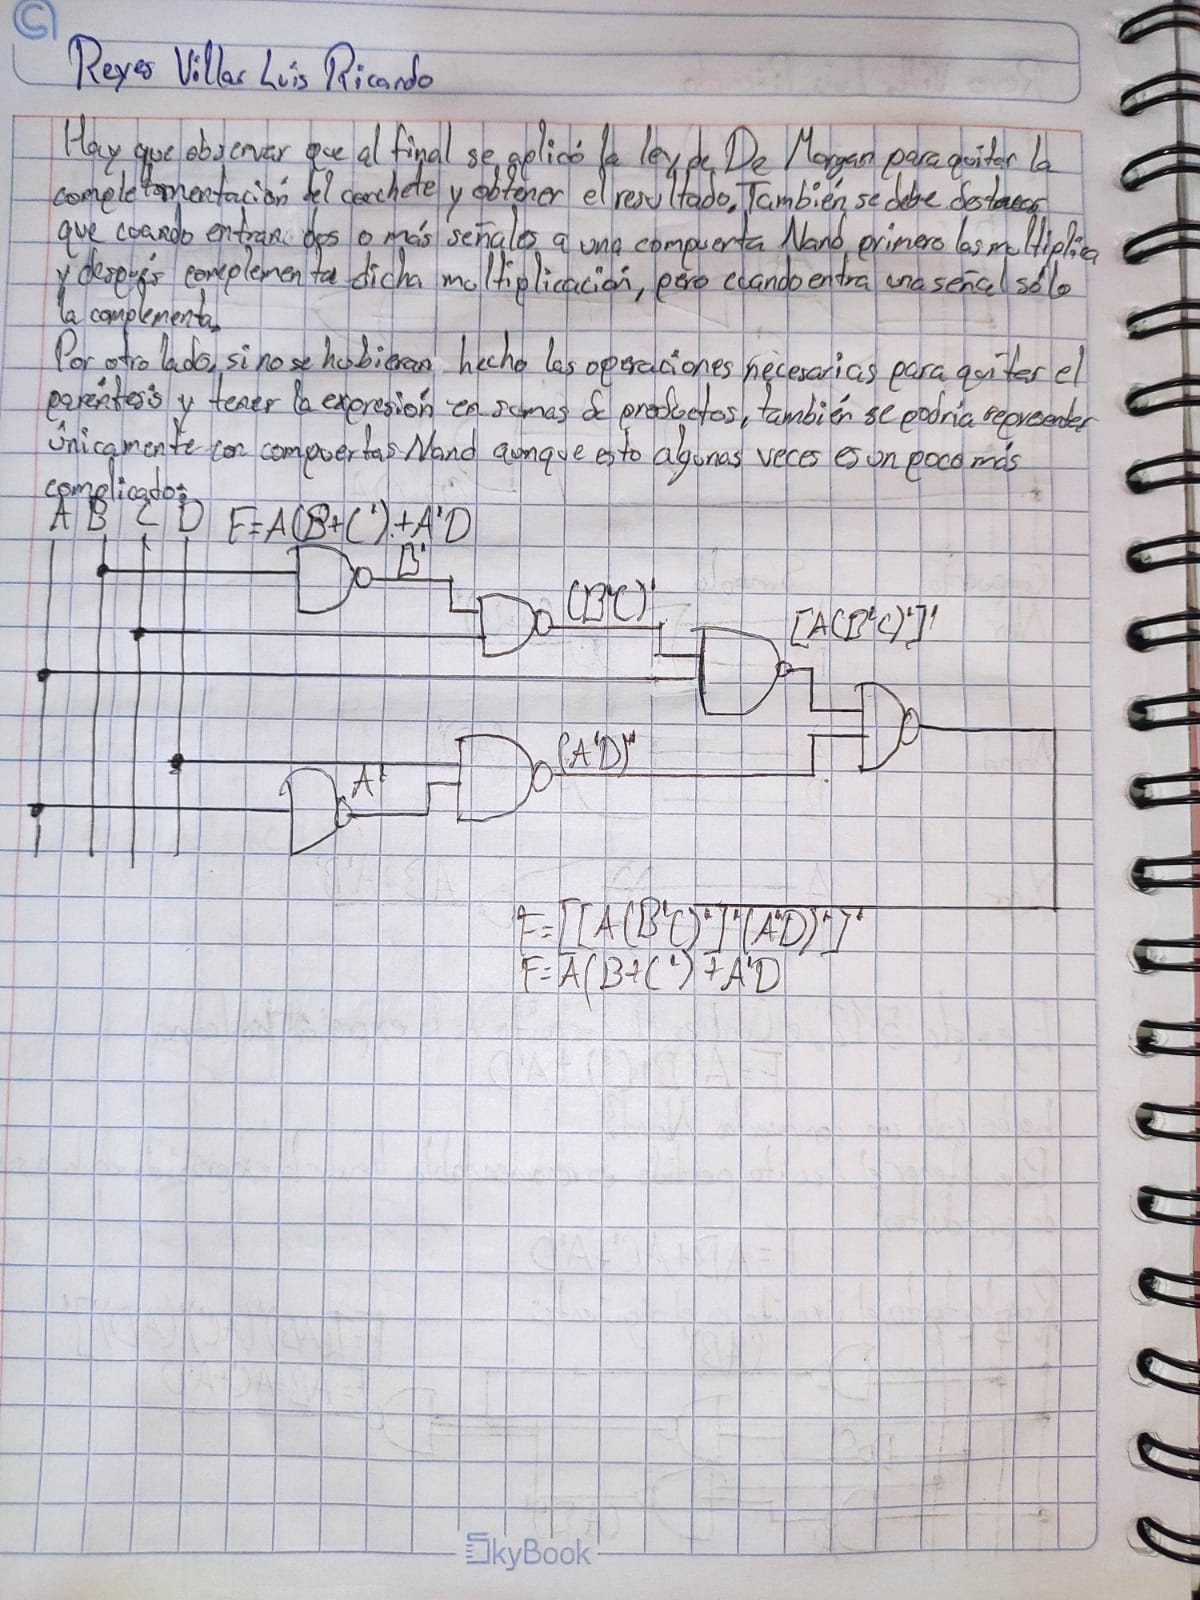 Reyes Villar Luis Ricardo
Hay que observar que al final se aplicó la ley de De Morgan para quitar la
completomentación del corchete y obtener el resultado. También se debe destacar
que cuando entran dos o más señales a una compuerta Nand primero las multiplica
y después complementa dicha multiplicación, pero cuando entra una señal sólo
la complementa.
Por otro lado, si no se hubieran hecho las operaciones necesarias para quitar el
paréntesis y tener la expresión en sumas de productos, también se podría representar
únicamente con compuertas Nand aunque esto algunas veces es un poco más
complicado:
A B C D F=A(B+C')+A'D
B'
(B'C)'
[A(B'C)']'
(A'D)'
A'
F=[[A(B'C)']'(A'D)']'
F=A(B+C')+A'D
SkyBook